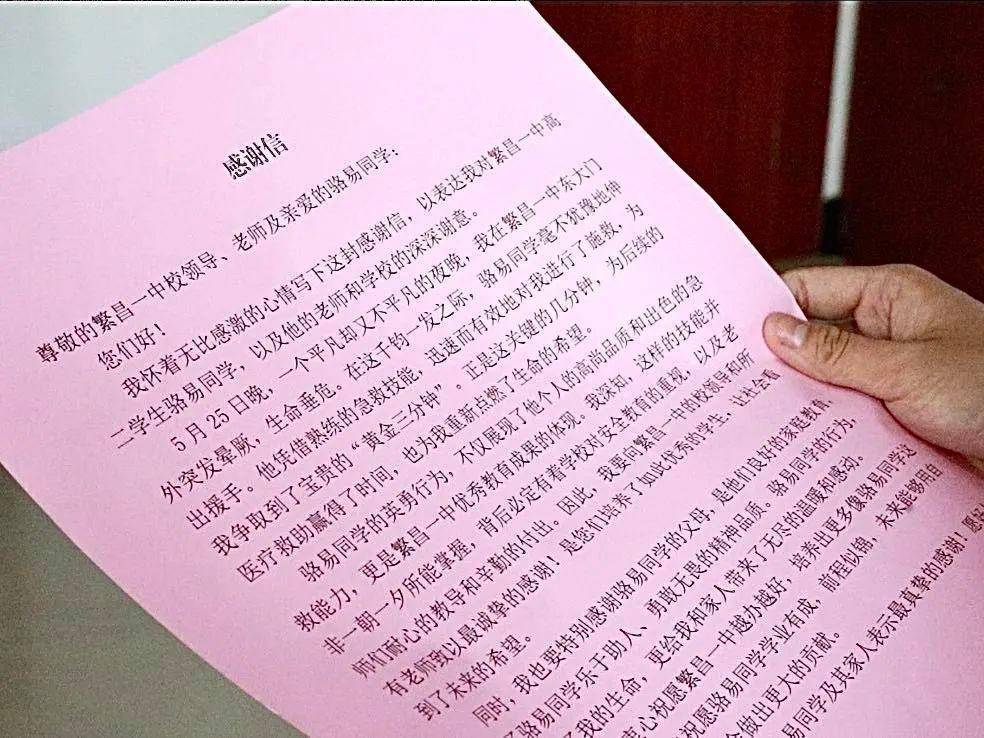 感谢信
尊敬的繁昌一中校领导、老师及亲爱的骆易同学：
您们好！
我怀着无比感激的心情写下这封感谢信，以表达我对繁昌一中高
二学生骆易同学，以及他的老师和学校的深深谢意。
5月25日晚，一个平凡却又不平凡的夜晚，我在繁昌一中东大门
外突发晕厥，生命垂危。在这千钧一发之际，骆易同学毫不犹豫地伸
出援手。他凭借熟练的急救技能，迅速而有效地对我进行了施救，为
我争取到了宝贵的“黄金三分钟”。正是这关键的几分钟，为后续的
医疗救助赢得了时间，也为我重新点燃了生命的希望。
骆易同学的英勇行为，不仅展现了他个人的高尚品质和出色的急
救能力，更是繁昌一中优秀教育成果的体现。我深知，这样的技能并
非一朝一夕所能掌握，背后必定有着学校对安全教育的重视，以及老
师们耐心的教导和辛勤的付出。因此，我要向繁昌一中的校领导和所
有老师致以最诚挚的感谢！是您们培养了如此优秀的学生，让社会看
到了未来的希望。
同时，我也要特别感谢骆易同学的父母，是他们良好的家庭教育，
骆易同学乐于助人、勇敢无畏的精神品质。骆易同学的行为，
了我的生命，更给我和家人带来了无尽的温暖和感动。
衷心祝愿繁昌一中越办越好，培养出更多像骆易同学这
祝愿骆易同学学业有成，前程似锦，未来能够用自
做出更大的贡献。
易同学及其家人表示最真挚的感谢！愿好